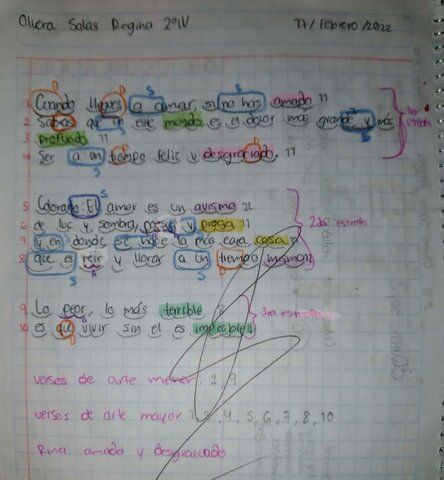 Olvera Salas Regina 2°IV 17/febrero/2022
1 Cuando llegues a amar, si no has amado 11
2 Sabras que en este mundo es el dolor más grande y más
3 profundo 11
4 Ser a un tiempo feliz y desgraciado. 11
1er estrofa
5 El amor es un
6 de luz y sombra, y
7 y en donde se hace la más
8 que es reir y llorar a un tiempo mismo 11
2da estrofa
9 Lo peor, lo más terrible
10 es que vivir sin el es
3ra
verses de arte menor: 3, 9
verses de arte mayor 1, 2, 4, 5, 6, 7, 8, 10
Rima amado y desgraciado